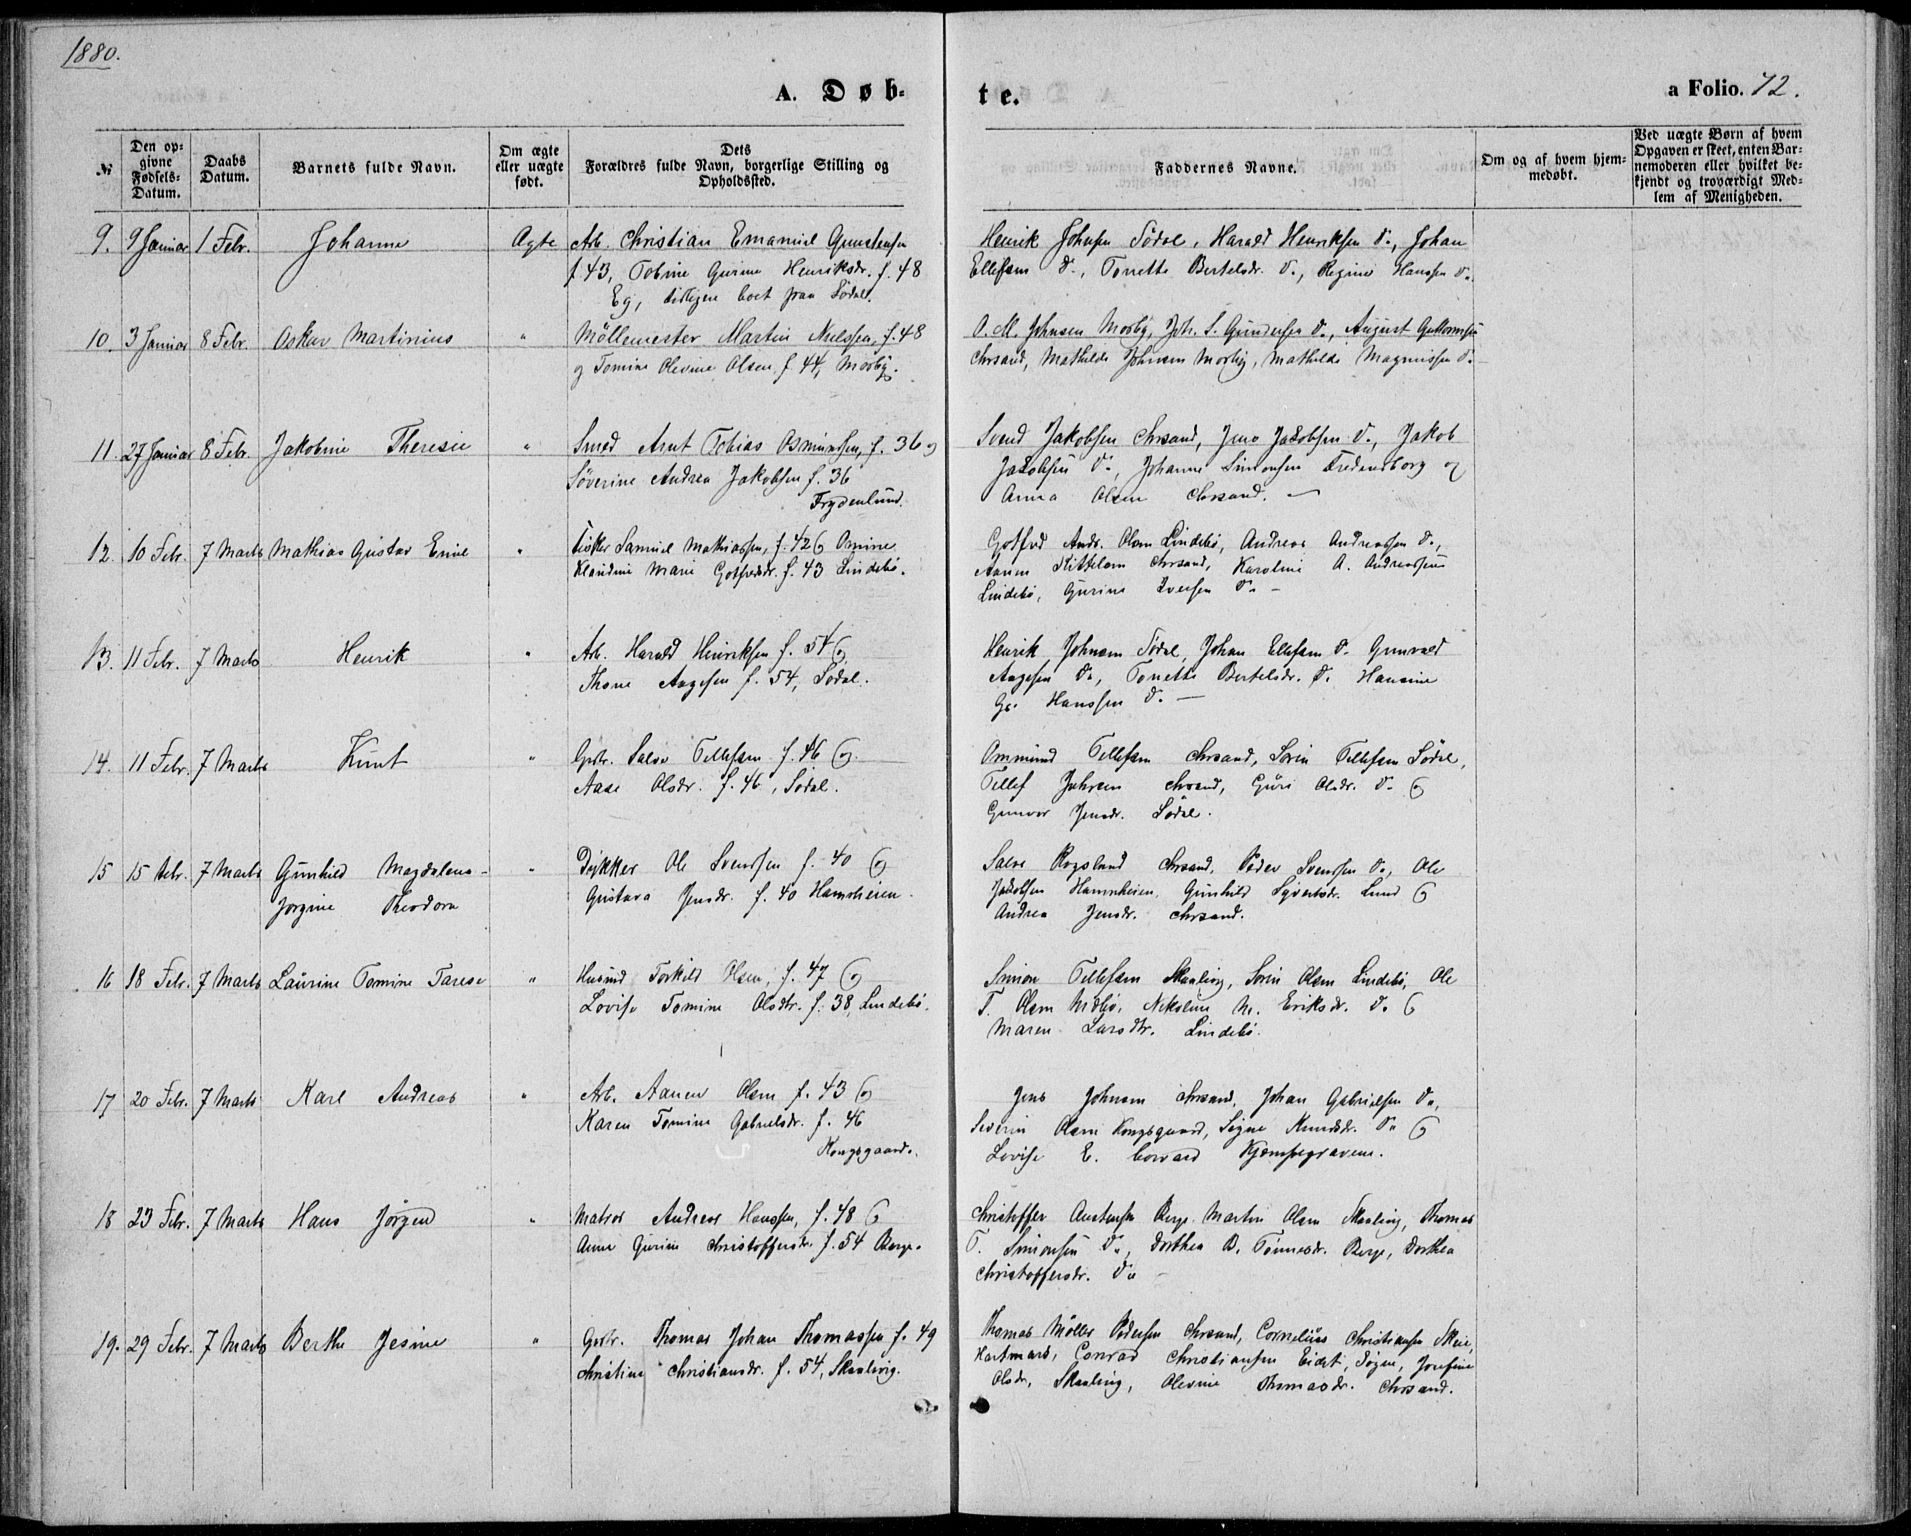 1880.
A. Døb-
te.
a Folio. 72.
№
Den opgivne Fødsels-Datum.
Daabs Datum.
Barnets fulde Navn.
Om ægte eller uægte født.
Dets Forældres fulde Navn, borgerlige Stilling og Opholdssted.
Faddernes Navne.
Om og af hvem hjemmedøbt.
Ved uægte Børn af hvem Opgaven er skeet, enten Barnemoderen eller hvilket bekjendt og troværdigt Medlem af Menigheden.
9. 9 Januar 1 Febr. Johanne Ægte Arb. Christian Emanuel Gunstensen
f. 43, Tobine Gurine Henriksdr. f. 48
Eg, tidligere boet paa Sødal.
Henrik Johnsen Sødal, Harald Henriksen do, Johan
Ellefsen do, Tonette Bertelsdr. do, Regine Hanssen do
10. 3 Januar 8 Febr. Oskar Martinius " Möllemester Martin Nielssen, f. 48
og Tomine Olevine Olsen f. 44, Mosby.
O. M. Johnsen Mosby, Joh. S. Gundersen do, August Guttormsen
Chrsand, Mathilde Johnsen Mosby, Mathilde Magnussen do
11. 27 Januar 8 Febr. Jakobine Theresie " Smed Arnt Tobias Osmundsen, f. 36 og
Söverine Andrea Jakobsen f. 36
Frydenlund.
Svend Jakobsen Chrsand, Jens Jakobsen do, Jakob
Jakobsen do, Johanne Simonsen Fredensborg og
Anna Olsen Chrsand. —
12. 10 Febr. 7 Marts Mathias Gustav Emil " Samuel Mathiassen, f. 42 & Omine
Klandine Marie Gotfredsdr. f. 43 Lindebö.
Gotfred Andr. Olsen Lindebö, Andreas Andreassen do,
Aanen Kittelsen Chrsand, Karoline A. Andreassen
Lindebö, Gurine Iversen do –
13. 11 Febr. 7 Marts Henrik " Arb. Harald Henriksen f. 54 &
Thone Aagesen f. 54, Sødal.
Henrik Johnsen Sødal, Johan Ellefsen do Gunvald
Aagesen do, Tonette Bertelsdr. do Hansine
G. Hanssen do —
14. 11 Febr. 7 Marts Knut " Gbr. Salve Tellefsen f. 46 &
Aase Olsdr. f. 46, Sødal.
Ommund Tellefsen Chrsand, Sørin Tellefsen Sødal,
Tellef Johnsen Chrsand, Guri Olsdr. do &
Gunvor Jensdr. Sødal.
15 15 Febr. 7 Marts Gunhild Magdalena
Jørgine Theodora " Dykker Ole Svenssen f. 40 &
Gustava Jensdr. f. 40 Hamreheien.
Salve Rogsland Chrsand, Peder Svenssen do, Ole
Jakobsen Hamreheien, Gunhild Syvertsdr. Lund &
Andrea Jensdr. Chrsand.
16 18 Febr. 7 Marts Laurine Tomine Tarese " Husmd Torkild Olsen, f. 47 &
Lovise Tomine Olsdtr. f. 38, Lindebö.
Simon Tellefsen Skaaleviq, Sørin Olsen Lindebö, Ole
T. Olsen Midbö, Nikoline M. Eriksdr. do &
Maren Larsdtr. Lindebö.
17 20 Febr. 7 Marts Karl Andreas " Arb. Aanen Olsen f. 43 &
Karen Tomine Gabrielsdr. f. 46
Kongsgaard.
Jens Johnsen Chrsand, Johan Gabrielsen do,
Severin Olsen Kongsgaard, Signe Knudsdr. do &
Lovise E. Corvard Kjempegravene.
18 23 Febr. 7 Marts Hans Jörgen " Matros Andreas Hanssen, f. 48 &
Anne Gurine Christoffersdr. f. 54 Berge.
Christoffer Austensen Berge, Martin Olsen Skaaleviq, Thomas
T. Simonsen do, Dorthea B. Tönnesdr. Berge, Dorthea
Christoffersdr. do –
19. 29 Febr. 7 Marts Berthe Jesine " Gbr. Thomas Johan Thomassen f. 49
Christine Christiansdr. f. 54, Skaalevig.
Thomas Möller Pedersen Chrsand, Cornelius Christiansen Skeie,
Hartmark, Conrad Christiansen Eidet, Søgne, Josefine
Olsdr. Skaalevig, Olevine Thomasdr. Chrsand.